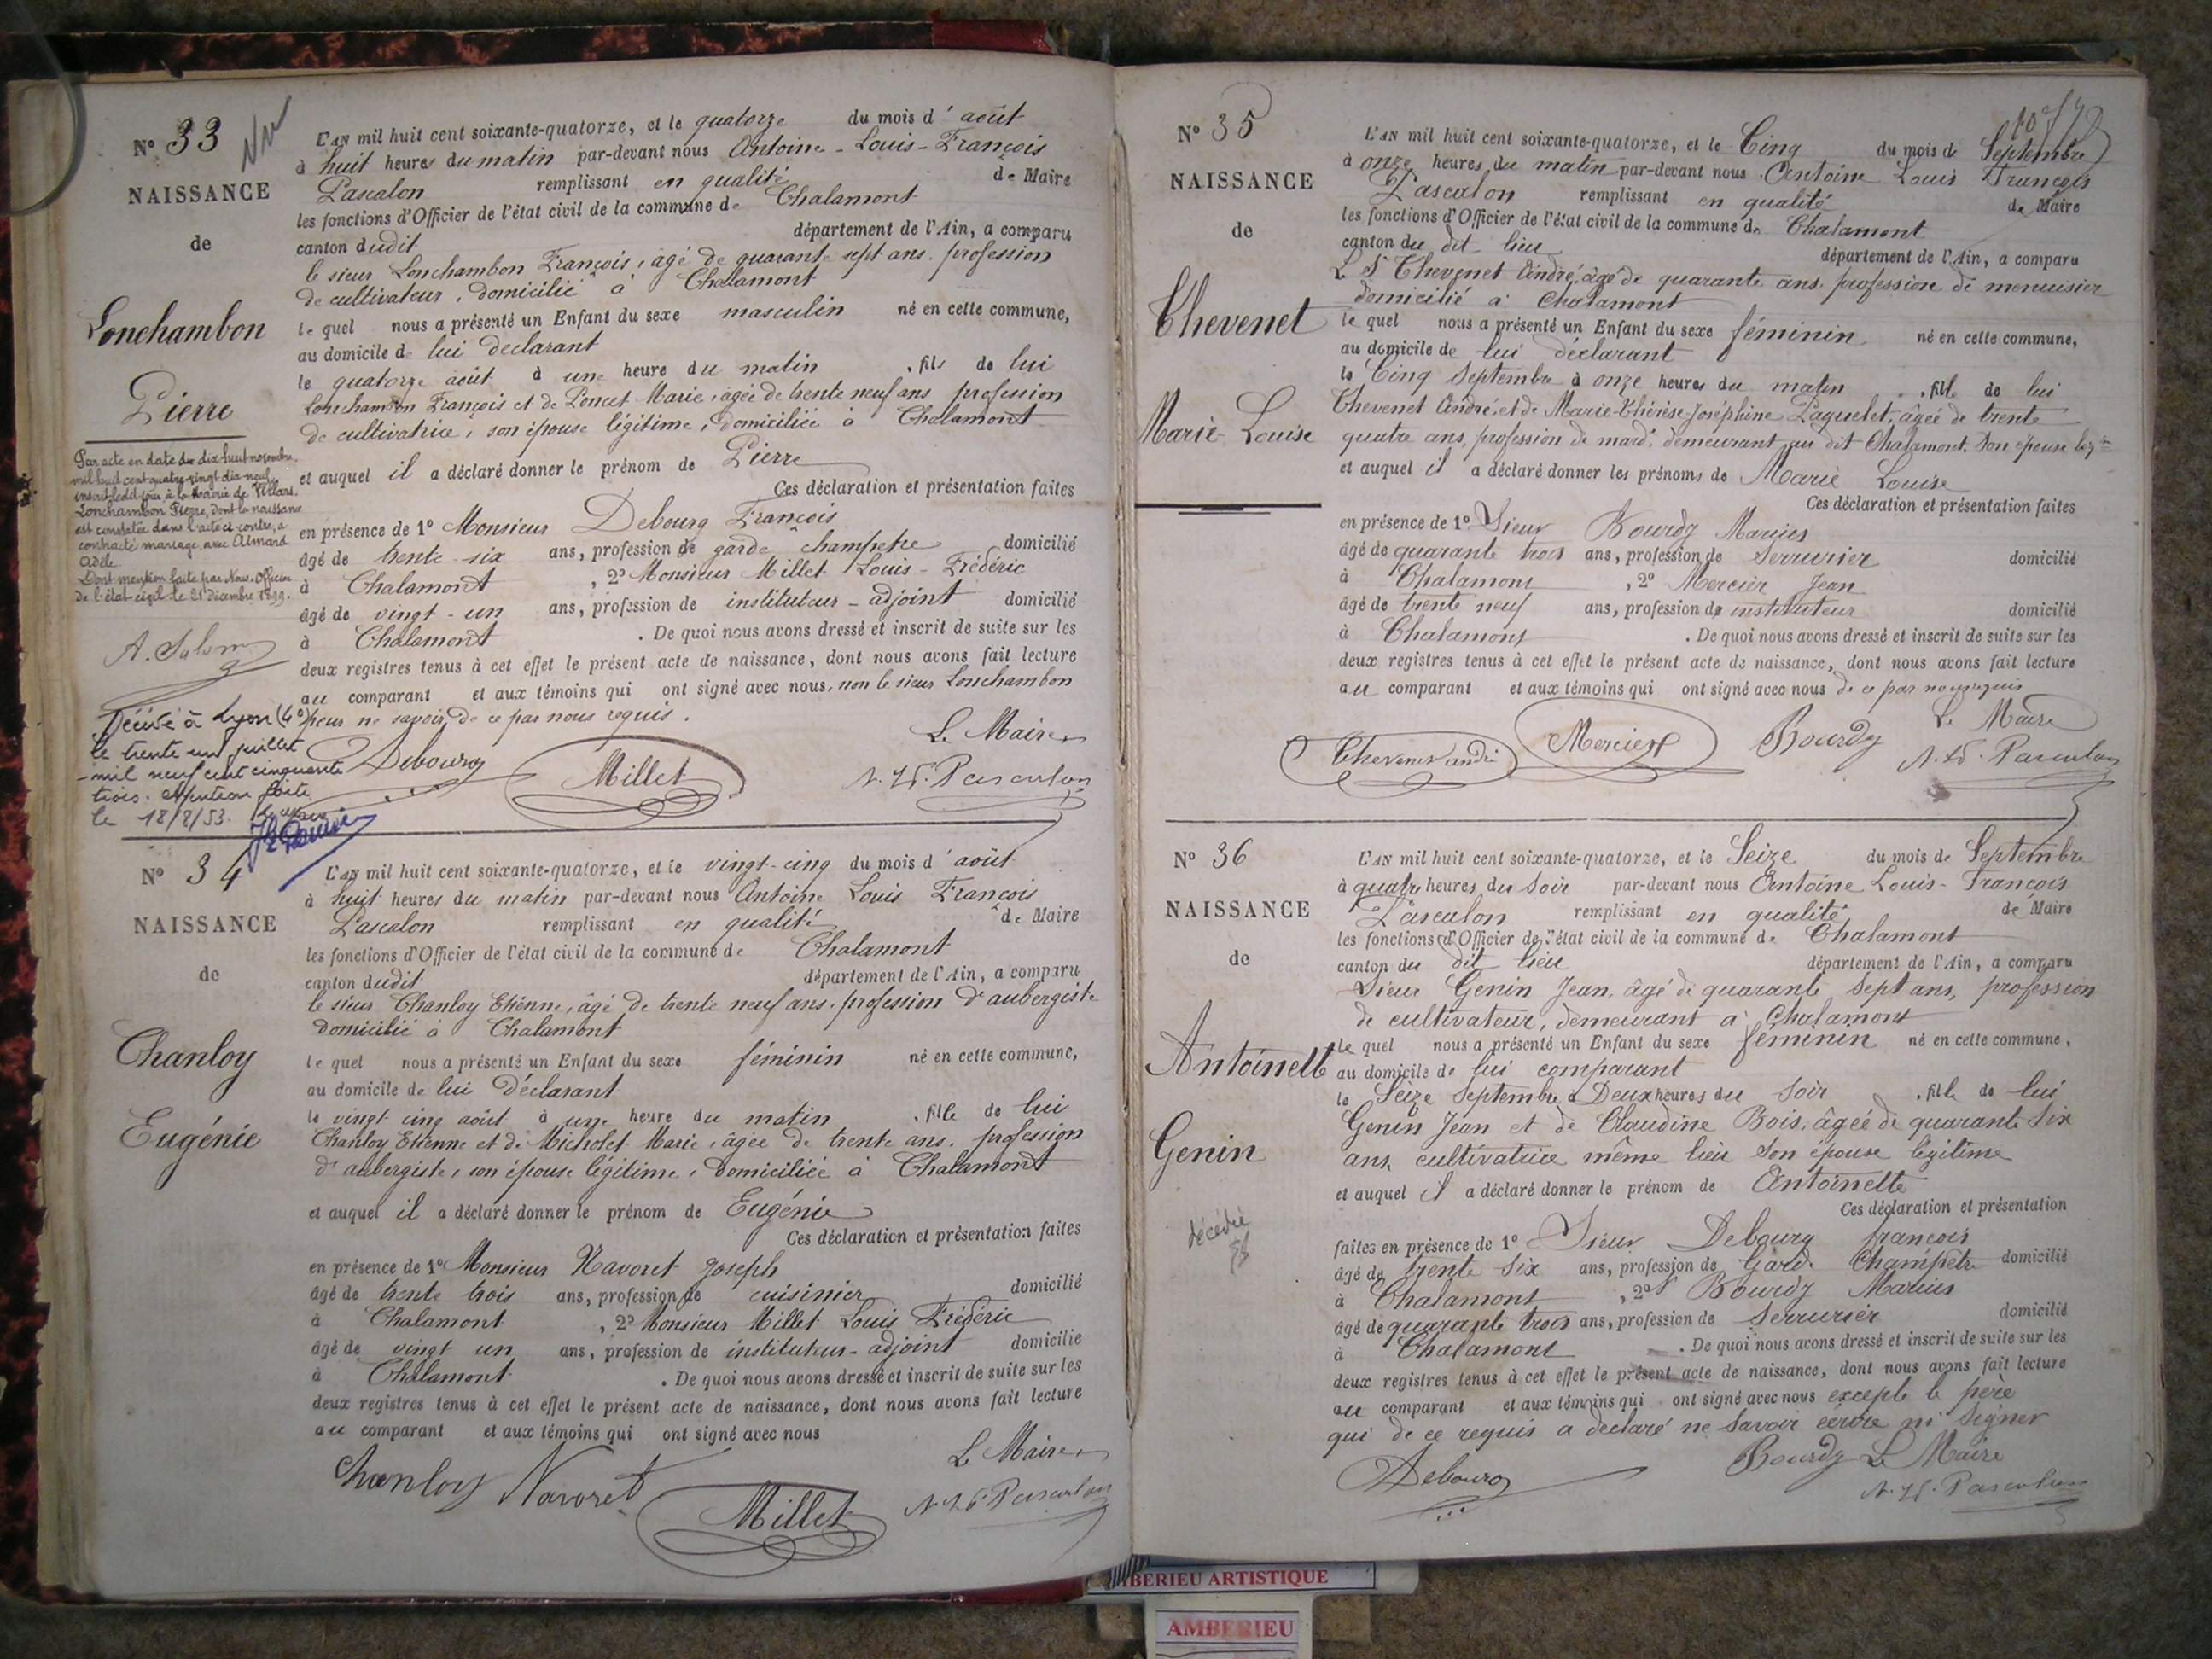 N° 33
NAISSANCE
de
Lonchambon
Pierre
Par acte en date du dix huit novembre
mil huit cent quatre-vingt dix-neuf
inscrit ledit jour à la Mairie de
Lonchambon Pierre, dont la naissance
est constatée dans l'acte ci-contre, a
contracté mariage avec Almard
Adèle
Dont mention faite par Nous, Officier
de l'état civil le 21 décembre 1899.
Décédé à Lyon (4e)
le trente un juillet
mil neuf cent cinquante
trois. Mention faite
le 18/8/53.
L'AN mil huit cent soixante-quatorze, et le quatorze du mois d'août
à huit heures du matin par-devant nous Antoine-Louis-François
Pascalon remplissant en qualité de Maire
les fonctions d'Officier de l'état civil de la commune de Chalamont
canton dudit département de l'Ain, a comparu
le sieur Lonchambon François, âgé de quarante sept ans. profession
de cultivateur, domicilié à Chalamont
le quel nous a présenté un Enfant du sexe masculin né en cette commune,
au domicile de lui déclarant
le quatorze août à une heure du matin, fils de lui
Lonchambon François et de Poncet Marie, âgée de trente neuf ans profession
de cultivatrice, son épouse légitime, domiciliée à Chalamont
et auquel il a déclaré donner le prénom de Pierre
Ces déclaration et présentation faites
en présence de 1° Monsieur Debourg François
âgé de trente-six ans, profession de garde champetre domicilié
à Chalamont, 2° Monsieur Millet Louis-Frédéric
âgé de vingt-un ans, profession de instituteur-adjoint domicilié
à Chalamont. De quoi nous avons dressé et inscrit de suite sur les
deux registres tenus à cet effet le présent acte de naissance, dont nous avons fait lecture
au comparant et aux témoins qui ont signé avec nous, non le sieur Lonchambon
pour ne savoir, de ce par nous requis.
Le Maire
Debourg Millet A. Ls. F. Pascalon
N° 34
NAISSANCE
de
Chanloy
Eugénie
L'AN mil huit cent soixante-quatorze, et le vingt-cinq du mois d'août
à huit heures du matin par-devant nous Antoine Louis François
Pascalon remplissant en qualité de Maire
les fonctions d'Officier de l'état civil de la commune de Chalamont
canton dudit département de l'Ain, a comparu
le sieur Chanloy Etienne, âgé de trente neuf ans. profession d'aubergiste
domicilié à Chalamont
le quel nous a présenté un Enfant du sexe féminin né en cette commune,
au domicile de lui Déclarant
le vingt cinq août à une heure du matin, fille de lui
Chanloy Etienne et de Micholet Marie, âgée de trente ans. profession
d'aubergiste, son épouse légitime, domiciliée à Chalamont
et auquel il a déclaré donner le prénom de Eugénie
Ces déclaration et présentation faites
en présence de 1° Monsieur Navoret Joseph
âgé de trente trois ans, profession de cuisinier domicilié
à Chalamont, 2° Monsieur Millet Louis Frédéric
âgé de vingt un ans, profession de instituteur-adjoint domicilié
à Chalamont. De quoi nous avons dressé et inscrit de suite sur les
deux registres tenus à cet effet le présent acte de naissance, dont nous avons fait lecture
au comparant et aux témoins qui ont signé avec nous
Le Maire
Chanloy Navoret Millet A. Ls. F. Pascalon
N° 35
NAISSANCE
de
Chevenet
Marie-Louise
L'AN mil huit cent soixante-quatorze, et le Cinq du mois de Septembre
à onze heures du matin par-devant nous Antoine Louis François
Pascalon remplissant en qualité de Maire
les fonctions d'Officier de l'état civil de la commune de Chalamont
canton du dit lieu département de l'Ain, a comparu
Le Sr Chevenet André, âgé de quarante ans, profession de menuisier
domicilié à Chalamont
le quel nous a présenté un Enfant du sexe féminin né en cette commune,
au domicile de lui déclarant
le Cinq Septembre à onze heures du matin, fille de lui
Chevenet André, et de Marie-Thérèse-Joséphine Paquelet, âgée de trente
quatre ans, profession de mard. demeurant au dit Chalamont. Son épouse légme
et auquel il a déclaré donner les prénoms de Marie Louise
Ces déclaration et présentation faites
en présence de 1° Sieur Bourdy Marius
âgé de quarante trois ans, profession de Serrurier domicilié
à Chalamont, 2° Mercier Jean
âgé de trente neuf ans, profession de instituteur domicilié
à Chalamont. De quoi nous avons dressé et inscrit de suite sur les
deux registres tenus à cet effet le présent acte de naissance, dont nous avons fait lecture
au comparant et aux témoins qui ont signé avec nous de ce par nous requis
Le Maire
Chevenet andré Mercier Bourdy A. Ls. F. Pascalon
N° 36
NAISSANCE
de
Antoinette
Genin
décédée
L'AN mil huit cent soixante-quatorze, et le Seize du mois de Septembre
à quatre heures du Soir par-devant nous Antoine Louis-François
Pascalon remplissant en qualité de Maire
les fonctions d'Officier de l'état civil de la commune de Chalamont
canton du dit lieu département de l'Ain, a comparu
Sieur Genin Jean, âgé de quarante Sept ans, profession
de cultivateur, demeurant à Chalamont
le quel nous a présenté un Enfant du sexe féminin né en cette commune,
au domicile de lui comparant
le Seize Septembre à Deux heures du Soir, fille de lui
Genin Jean et de Claudine Bois, âgée de quarante Six
ans, cultivatrice même lieu Son épouse légitime
et auquel il a déclaré donner le prénom de Antoinette
Ces déclaration et présentation
faites en présence de 1° Sieur Debourg françois
âgé de trente Six ans, profession de Garde Champêtre domicilié
à Chalamont, 2° Sr Bourdy Marius
âgé de quarante trois ans, profession de Serrurier domicilié
à Chalamont. De quoi nous avons dressé et inscrit de suite sur les
deux registres tenus à cet effet le présent acte de naissance, dont nous avons fait lecture
au comparant et aux témoins qui ont signé avec nous excepté le père
qui de ce requis a déclaré ne Savoir écrire ni Signer
Debourg Bourdy Le Maire
A. Ls. F. Pascalon
AMBERIEU ARTISTIQUE
AMBERIEU